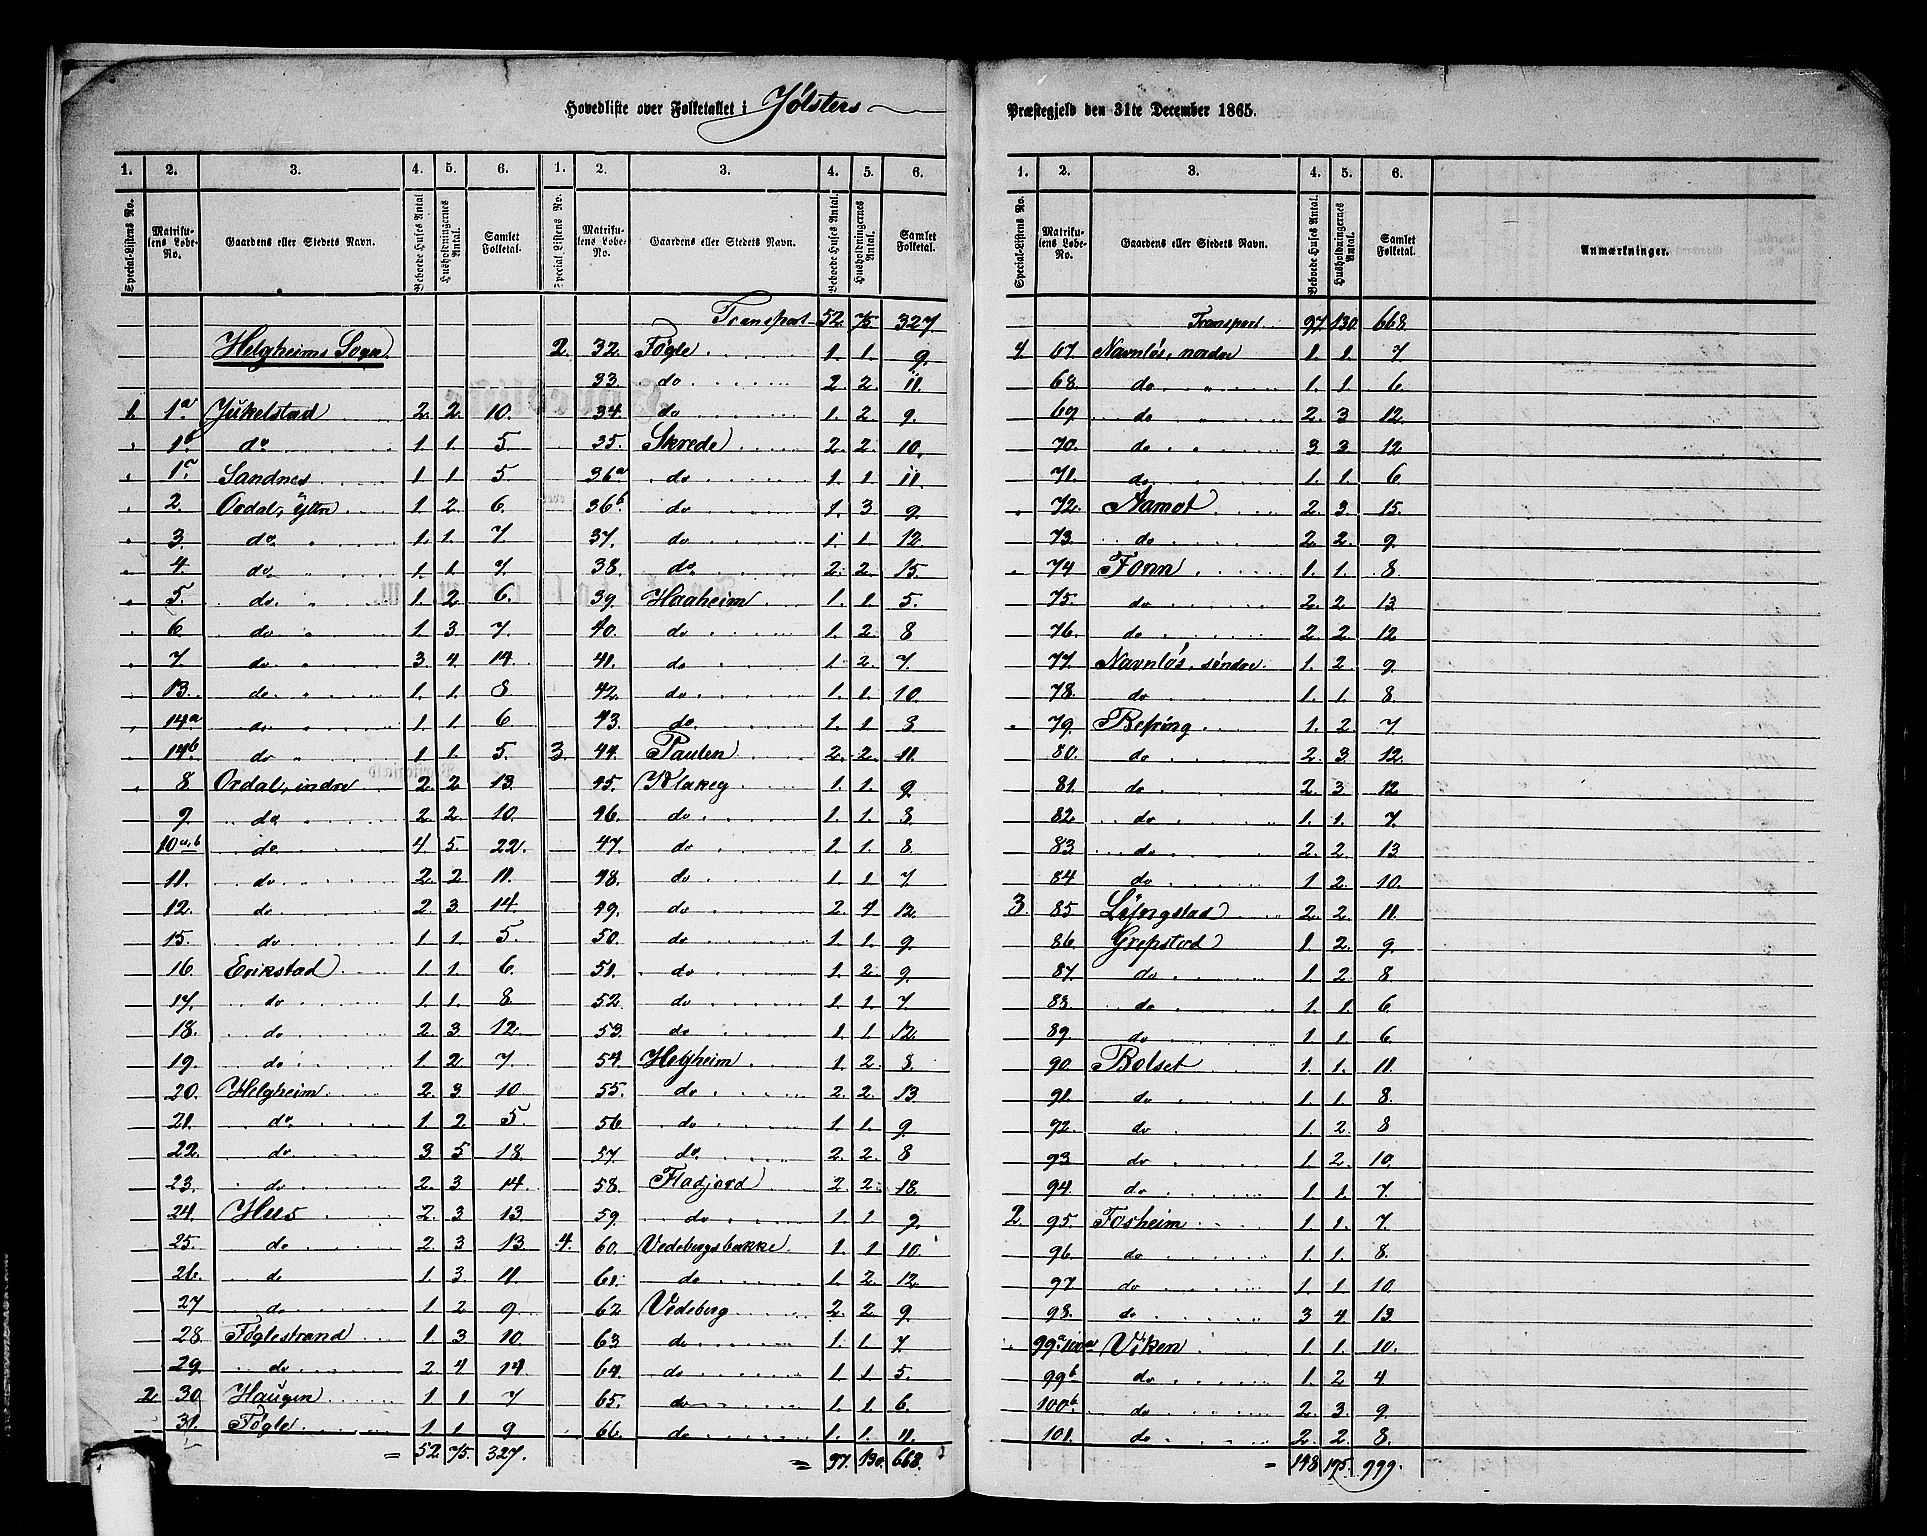 Hovedliste over Folketallet i Jølsters
Præstegjeld den 31te December 1865.
1. 2. 3. 4. 5. 6. 1. 2. 3. 4. 5. 6.
Special-Listens No. Matrikulens Løbe-No. Gaardens eller Stedets Navn. Beboede Huses Antal. Husholdningernes Antal. Samlet Folketal. Special-Listens No. Matrikulens Løbe-No. Gaardens eller Stedets Navn. Beboede Huses Antal. Husholdningernes Antal. Samlet Folketal.
Helgheims Sogn
1. 1a. Jukelstad 2. 2. 10.
1b. do 1. 1. 5.
1c. Sandnes 1 1 5
2. Ordal, ÿtre 1 2 6.
3. do 1. 1. 7
4. do 1. 1. 7.
5. do. 1. 2 6.
6 do 1 3. 7.
7. do 3. 4. 14.
13. do 1. 1. 8
14a do. 1 1 6
14b. do 1 1. 5.
8 Ordal, indre 2. 2 13.
9. do 2 2. 10.
10a,b do. 4 5. 22.
11. do 2. 2 11.
12. do 2. 3. 14.
15. do 1 1. 5.
16. Erikstad 1 1. 6.
17. do 1. 1. 8.
18. do 2. 3 12.
19. do 1. 2. 7
20. Helgheim 2. 3. 10
21. do. 1 2 5.
22. do. 3 5 18.
23. do 2. 3 14.
24. Hus 2. 3 13.
25. do 2. 3 13
26. do 1. 3 11
27 do 1 2 9
28. Føglestrand 1 3. 10
29. do 2. 4 14
2. 30. Haugen 1 1 7
31. Føgle 1 1 9
= 52. 75. 327.
Transport 52. 75 327
2. 32. Føgle 1. 1. 9.
33. do 2 2. 11.
34. do 1. 2. 9.
35. Skrede 2. 2. 10.
36a do 1. 1 11.
36b. do 1. 3 9
37. do 1. 1. 12
38. do. 2. 2 15.
39. Haaheim 1. 1. 5.
40. do 1. 2. 8
41. do 1. 2. 7.
42. do 1. 1. 10
43. do 1. 1. 3
3. 44. Paulen 2. 2. 11.
45. Klakeg 1. 1. 9
46. do. 1. 1. 3
47. do 1. 1. 8.
48. do 1 1 7
49. do 2. 4 12.
50. do 1. 1. 9
51. do 1. 2. 9
52. do 1. 1. 7.
53. do 1. 1 12
54. Helgheim 1. 2. 8.
55. do 2. 2. 13
56 do 1. 1. 9
57. do 2. 2. 8
58. Fladjord 2 2. 18.
59. do 1. 1 9
4. 60. Vedebergsbakke 1. 1 10.
61. do 1. 2. 12
62 Vedeberg 2. 2. 9
63 do 1. 1. 7
64. do 1 1. 5.
65. do 1. 1. 6.
66 do 1. 1. 11.
= 97. 130. 668.
1. 2. 3. 4. 5. 6.
Special-Listens No. Matrikulens Løbe-No. Gaardens eller Stedets Navn. Beboede Huses Antal. Husholdningernes Antal. Samlet Folketal. Anmærkninger.
Transport 97 130 668
4 67. Navnløs, nordre 1. 1. 7
68. do 1. 1. 6.
69 do 2. 3 12.
70. do 3 3. 12
71. do 1. 1. 6
72. Aamot 2. 3. 15.
73. do 2. 2. 9.
74 Fonn 1. 1. 8.
75. do 2. 2 13
76. do 2. 2 12
77. Navnløs, søndre 1. 2. 9.
78. do 1. 1. 8
79. Befring 1. 2. 7
80. do 2. 3. 12.
81. do 2. 3 12.
82. do 1. 1. 7.
83 do 2. 2. 13
84 do 1 2. 10.
3. 85 Løfngstad 2. 2. 11.
86 Grepstad 1. 2. 9.
87 do 1. 2 8
88. do 1. 1. 6
89. do 1. 1 6
90 Bolset 1. 1. 11
91. do 1. 1. 8.
92. do 1. 2. 8
93 do 1. 2. 10.
94. do 1. 1. 7.
2. 95. Fosheim 1. 1. 7.
96 do 1. 1. 8.
97. do 1. 1. 10
98. do 3 4 13
99a Viken 1. 1. 10.
99b do 1. 2 4
100b do 2. 3. 9
101. do 2. 2 8.
= 148 195. 999.